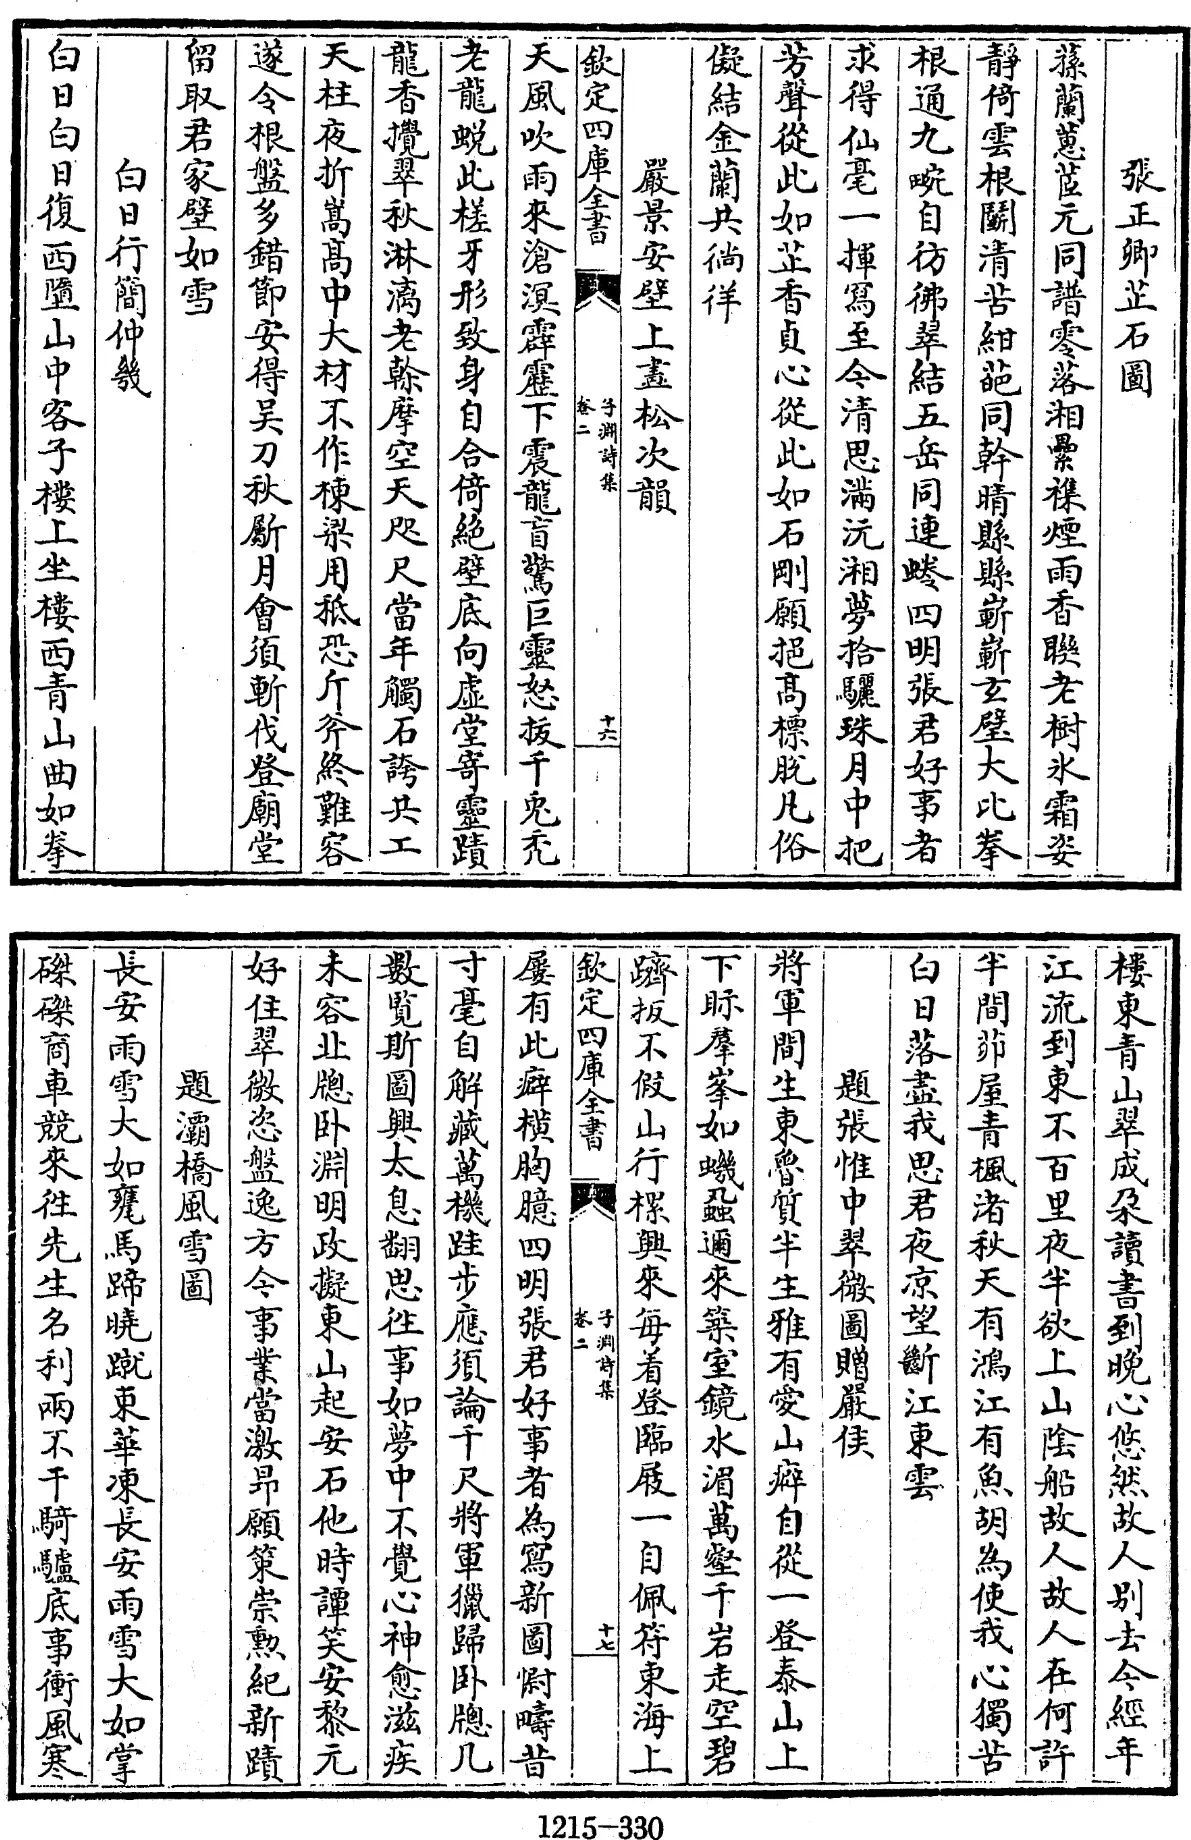 張正卿芷石圖
蓀蘭蕙茝元同譜零落湘纍襍煙雨香聯老樹氷霜姿
靜倚雲根鬭清苦紺葩同幹晴縣縣嶄嶄玄壁大比拳
根通九畹自彷彿翠結五岳同連蜷四明張君好事者
求得仙毫一揮寫至今清思滿沅湘夢拾驪珠月中把
芳聲從此如芷香貞心從此如石剛願挹髙標脫凡俗
儗結金蘭共徜徉
嚴景安壁上畫松次韻
欽定四庫全書
子淵詩集
卷二
十六
天風吹雨來滄溟霹靂下震龍盲驚巨靈怒扳千兎禿
老龍蛻此槎牙形致身自合倚絶壁底向虛堂寄靈蹟
龍香攪翠秋淋漓老榦摩空天咫尺當年觸石誇共工
天柱夜折嵩髙中大材不作棟梁用秪恐斤斧終難容
遂令根盤多錯節安得吴刀秋斸月會須斬伐登廟堂
留取君家壁如雪
白日行簡仲㡬
白日白日復西墮山中客子樓上坐樓西青山曲如拳
樓東青山翠成朶讀書到晚心悠然故人别去今經年
江流到東不百里夜半欲上山隂船故人故人在何許
半間茆屋青楓渚秋天有鴻江有魚胡為使我心獨苦
白日落盡我思君夜凉望斷江東雲
題張惟中翠微圖贈嚴侯
將軍間生東魯質半生雅有愛山癖自從一登泰山上
下眎羣峯如蟣蝨邇來築室鏡水湄萬壑千岩走空碧
躋扳不假山行樏興來每着登臨屐一自佩符東海上
欽定四庫全書
子淵詩集
卷二
十七
屡有此癖橫胸臆四明張君好事者為寫新圖慰疇昔
寸毫自解藏萬機跬步應須論千尺將軍獵歸卧牕几
數覧斯圖興太息翻思徃事如夢中不覺心神愈滋疾
未容北牕卧淵明政擬東山起安石他時譚笑安黎元
好住翠微恣盤逸方今事業當激昻願策崇勲紀新蹟
題灞橋風雪圖
長安雨雪大如甕馬蹄曉蹴東華凍長安雨雪大如掌
磔磔商車競來徃先生名利兩不干騎驢底事衝風寒
1215-330